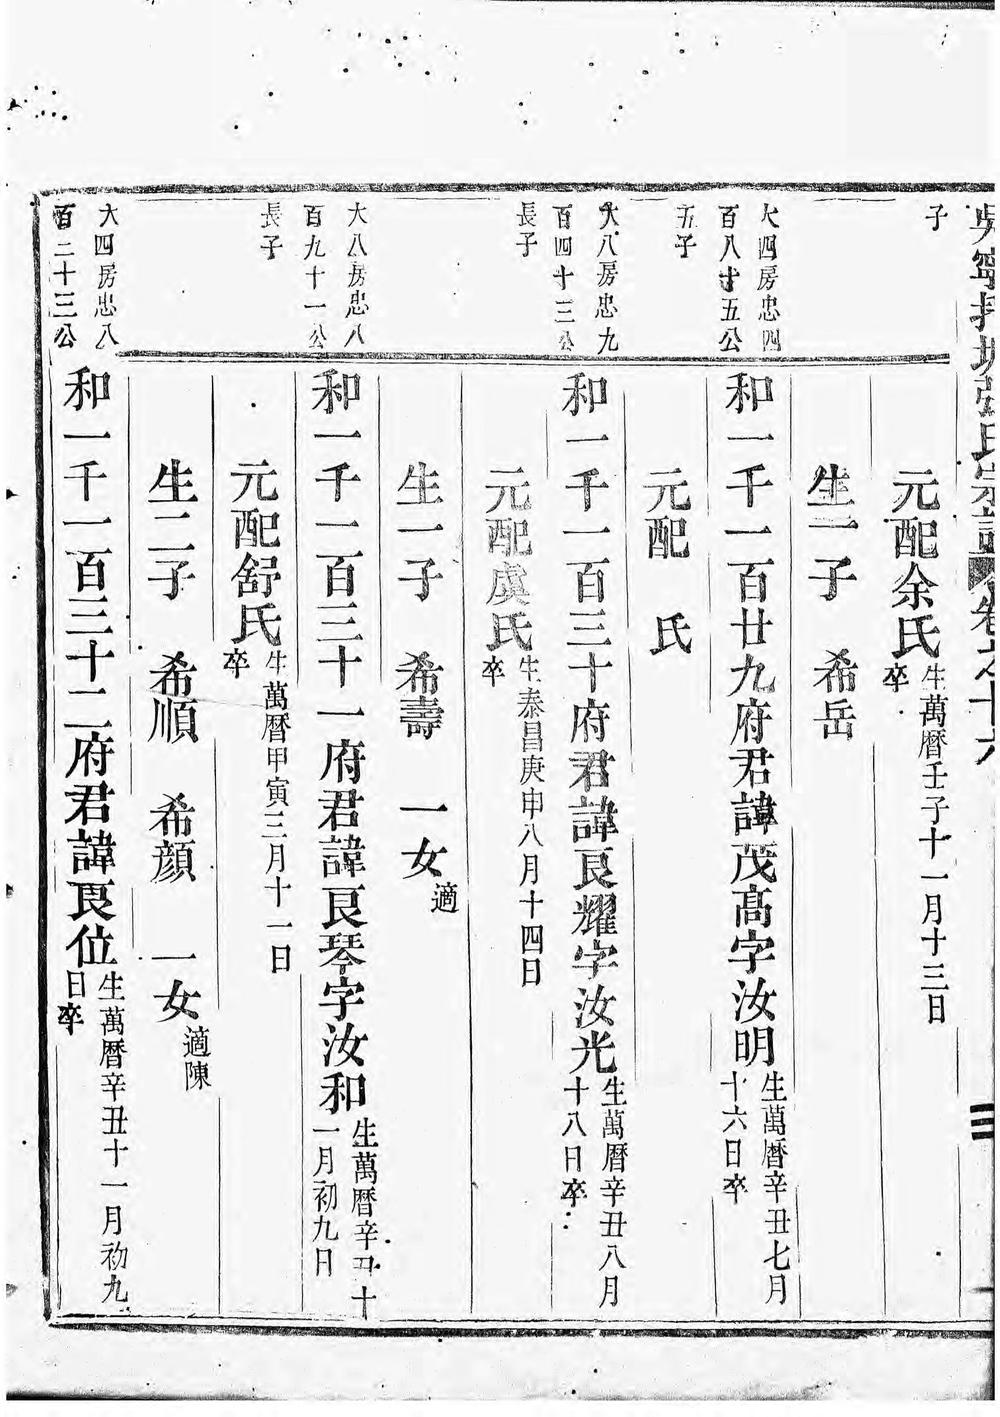 吳寧托塘張氏宗譜 卷之十六
子
元配余氏生萬曆壬子十一月十三日
卒
生一子 希岳
大四房忠四
百八十五公
五子
和一千一百廿九府君諱茂高字汝明生萬曆辛丑七月
十六日卒
元配 氏
大八房忠九
百四十三公
長子
和一千一百三十府君諱良耀字汝光生萬曆辛丑八月
十八日卒
元配虞氏生泰昌庚申八月十四日
卒
生一子 希壽 一女適
大八房忠八
百九十一公
長子
和一千一百三十一府君諱良琴字汝和生萬曆辛丑十
一月初九日
元配舒氏生萬曆甲寅三月十一日
卒
生二子 希順 希顔 一女適陳
大四房忠八
百二十三公
和一千一百三十二府君諱良位生萬曆辛丑十一月初九
日卒